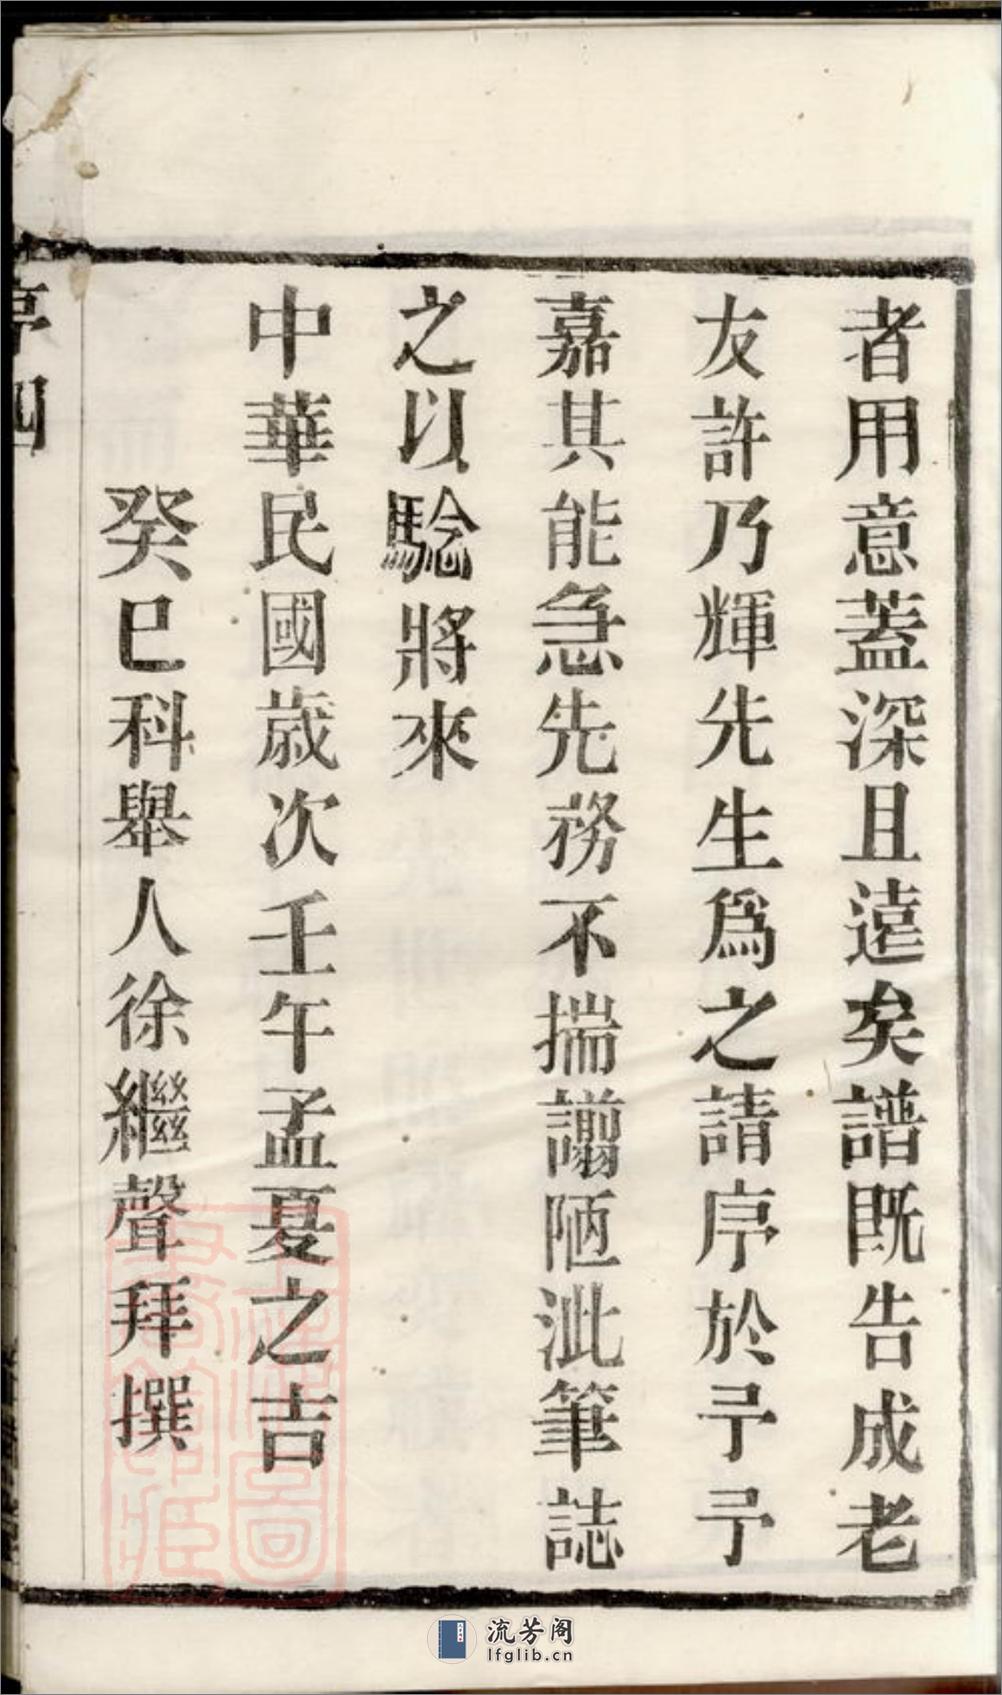 者用意蓋深且遠矣譜既告成老
友許乃輝先生爲之請序於予予
嘉其能急先務不揣譾陋泚筆誌
之以騐將來
中華民國歲次壬午孟夏之吉
癸巳科舉人徐繼聲拜撰
序四
流芳阁
lfglib.cn